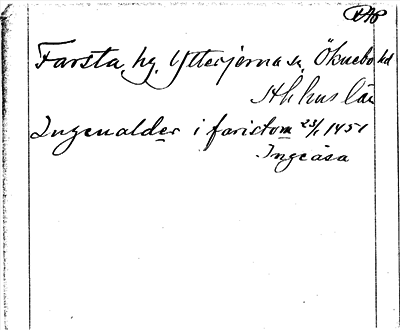 Farsta, hg. Ytterjärna sn, Öknebo hd
Sthlms län
Ingeualder i faristom 23/1 1451
Ingeåsa